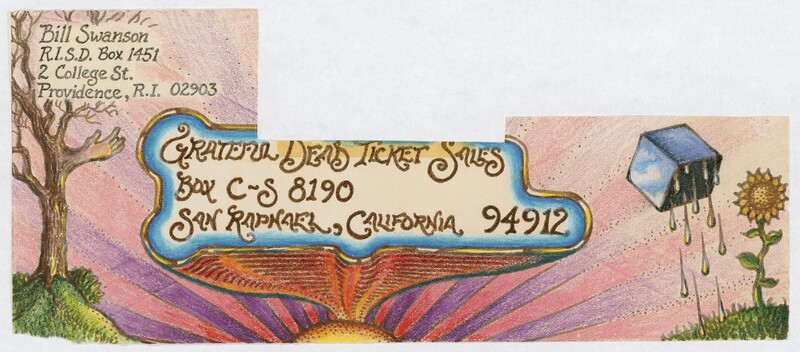 Bill Swanson
R.I.S.D. Box 1451
2 College St.
Providence, R.I. 02903
Grateful Dead Ticket Sales
Box C-S 8190
San Raphael, California 94912